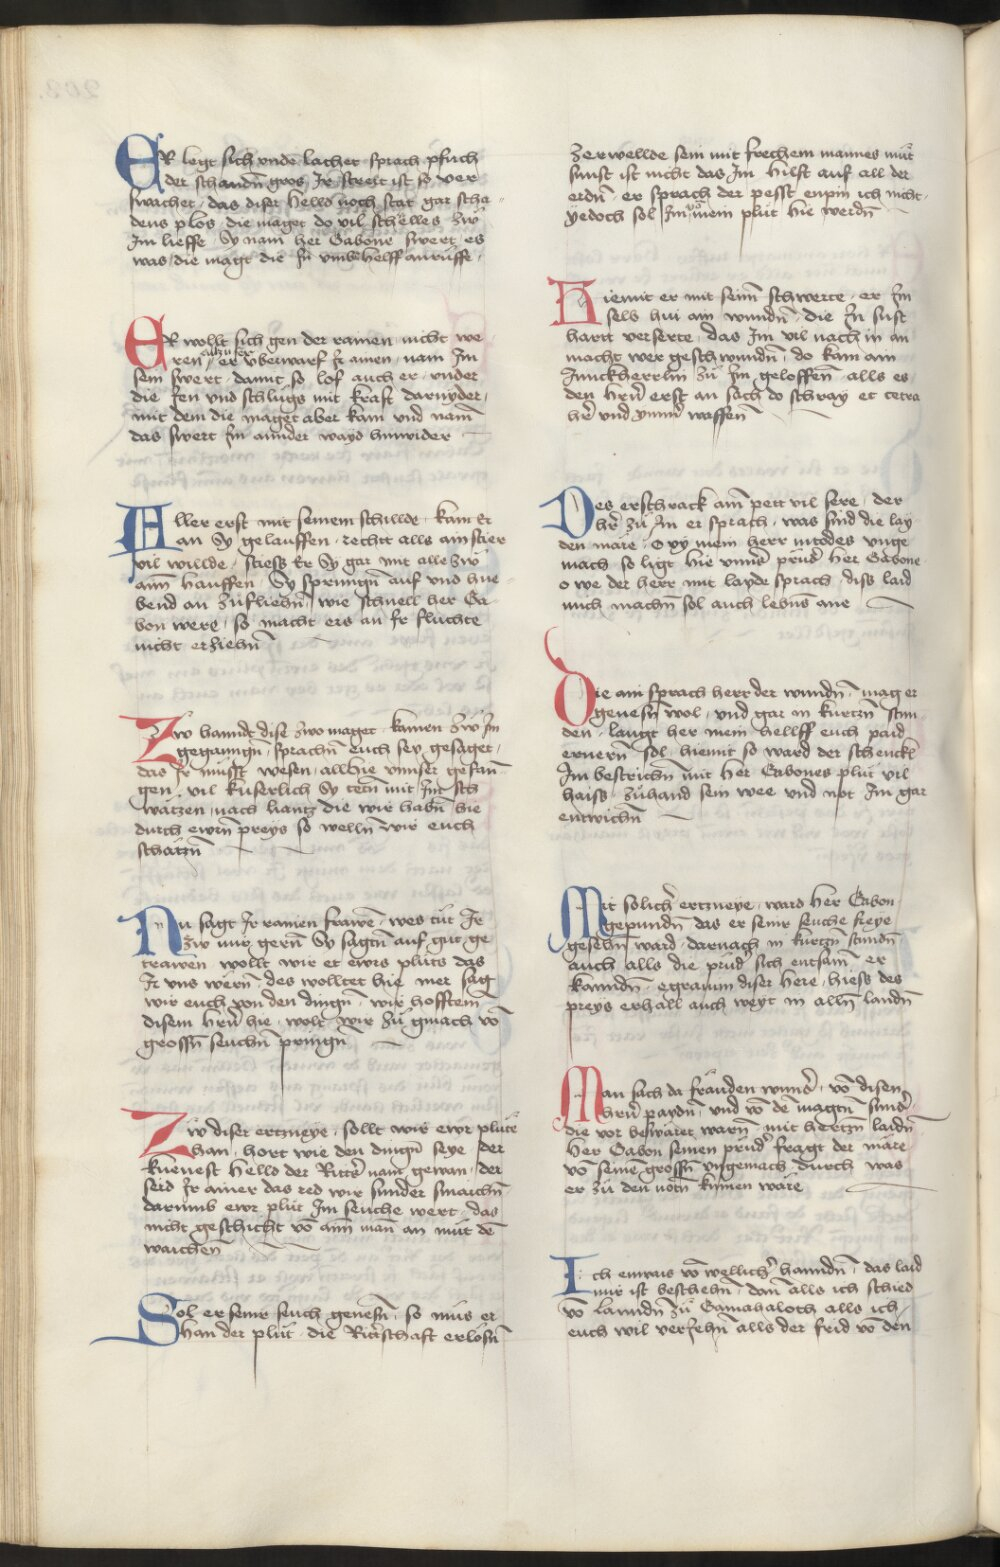 ER legt sich vnde lachet sprach pfuch
der schandn̄ gros Jr streit ist so ver
swachet, das diser hello noch stat gar scha-
dens plos, die maget do vil schelles zw
Jm lieffe, Sy nam her Gabone swert, es
was, die magt die Jn vmb helff anruffe,
ER wollt sich gen der ramen, nicht we
ren, er vberwarf Jr ainen, nam Jm
sein swert, damit so lof auch er, vnder
die Jen vnd schlugs mit kraft darnyder,
mit dem die maget aber kam vnd nam̄
das swert Jm annder wayd hinwider
Aller erst mit seinem schillde, kam Er
an Sy gelauffen, recht alls ain stier
vil willde, stiess Er Sy gar mit alle zw
ain̄ hauffen, Sy sprungn̄ auf vnd hue-
bend an zufliehn̄, wie schnell her Ga-
bon were, so macht ers an Jr fluchte
nicht erziehn̄
Zw hanndt dise zwo maget, kamen zw Jm
gegangn̄, sprachn̄ euch sey gesaget,
das Jr müsst wesen, allhie vnnser gefan̄-
gen, vil kuserlich Sy tetn̄ mit Jm sch
watzen, nach liantz die wir habn̄ hie
durch ewrn̄ preys so welln̄ wir euch
schatzn̄
Nu sagt Jr ramen frawē, wes tůt Jr
zw mir gern̄ Sy sagtn̄ auf gut ge
trawen, wollt wir et ewrs pluts das
Jr vns wern̄, des wolltet hie mer sag
wir euch von den dingn̄, wir hofften
disem hrn̄ hie, wolt wir zů gmach vō
grossn̄ seuchn̄ pringn̄
Zw diser ertzneye, sollt wir ewr pluts
han, hort wie den dingn̄ seye, der
kuenest hello der Ritt's nam̄ gewan, der
seid Jr ainer das red wir sunder smaichn̄
darumb ewr plut Jm seuche wert, das
nicht geschicht vō ain̄ man̄ an můt dē
waichen
Sol er seinr seuch genesn̄, so mus er
han der plut, die Rit'schaft erlosn̄
zerwellde sein mit frechem mannes mut
sunst ist nicht das Jm hilft auf all der
erdn̄, er sprach der pesst enpin ich nicht,
yedoch sol Jm vō mein plut hie werdn̄
Hiemit er mit seim̄ schwerte, er Jm
sels hui ain wundn̄, die Jn sust
hart verserte, das Jm vil nach in an
macht wer geschwunndn̄, do kam ain
Junckherrlin zů Jm geloffen̄, alls es
den hrn̄ erst an sach do schray et cetra
her̄ vnd ymm̄ waffen
Des erschrack am pett vil sere, der
her̄ zů Jm er sprach, was sind die lay-
den mare, Oxy mein herr mtodes vnge
mach so ligt hie vnns' prud' her Gabone,
o we der herr mit layde sprach, diss laid
mich machn̄ sol auch lebns ane
Die ain sprach herr der wundn̄, mag er
genesn̄ wol, vnd gar in kurtzn̄ stun-
den, langt her mein hellff euch paid
ernern̄ sol, hiemit so ward der schenckl
Jm bestrichn̄ mit her Gabones plut vil
haiss, zůhand sein wee vnd not Jm gar
entwichn̄
Mit solich' ertzneye, ward her Gabon
gepundn̄ das er seinr seuche freye
gesehn̄ ward, darnach in kurtzn̄ stundn̄
auch alls die prud' sich entsam̄, er
kanndn̄, egraium diser here, hiess des
preys erhall auch weyt in alln̄ landn̄
Man sach da fräuden wund', vō disen
hrn̄ paydn̄, vnd vō dē magtn̄ sund',
die vor beswäret warn̄, mit hertzn̄ laidn̄
her Gabon seinen prud' fragt der märe
vō seinē grossn̄ vngemach, durch was
er zů den notn̄ kumen wäre
Ich enwais vō wellich' hanndn̄, das laid
mir ist beschehn̄, dan̄ alls ich schied
vō lanndn̄ zů Gamahaloth alls ich,
euch wil veriehn̄ alls der frid vō den